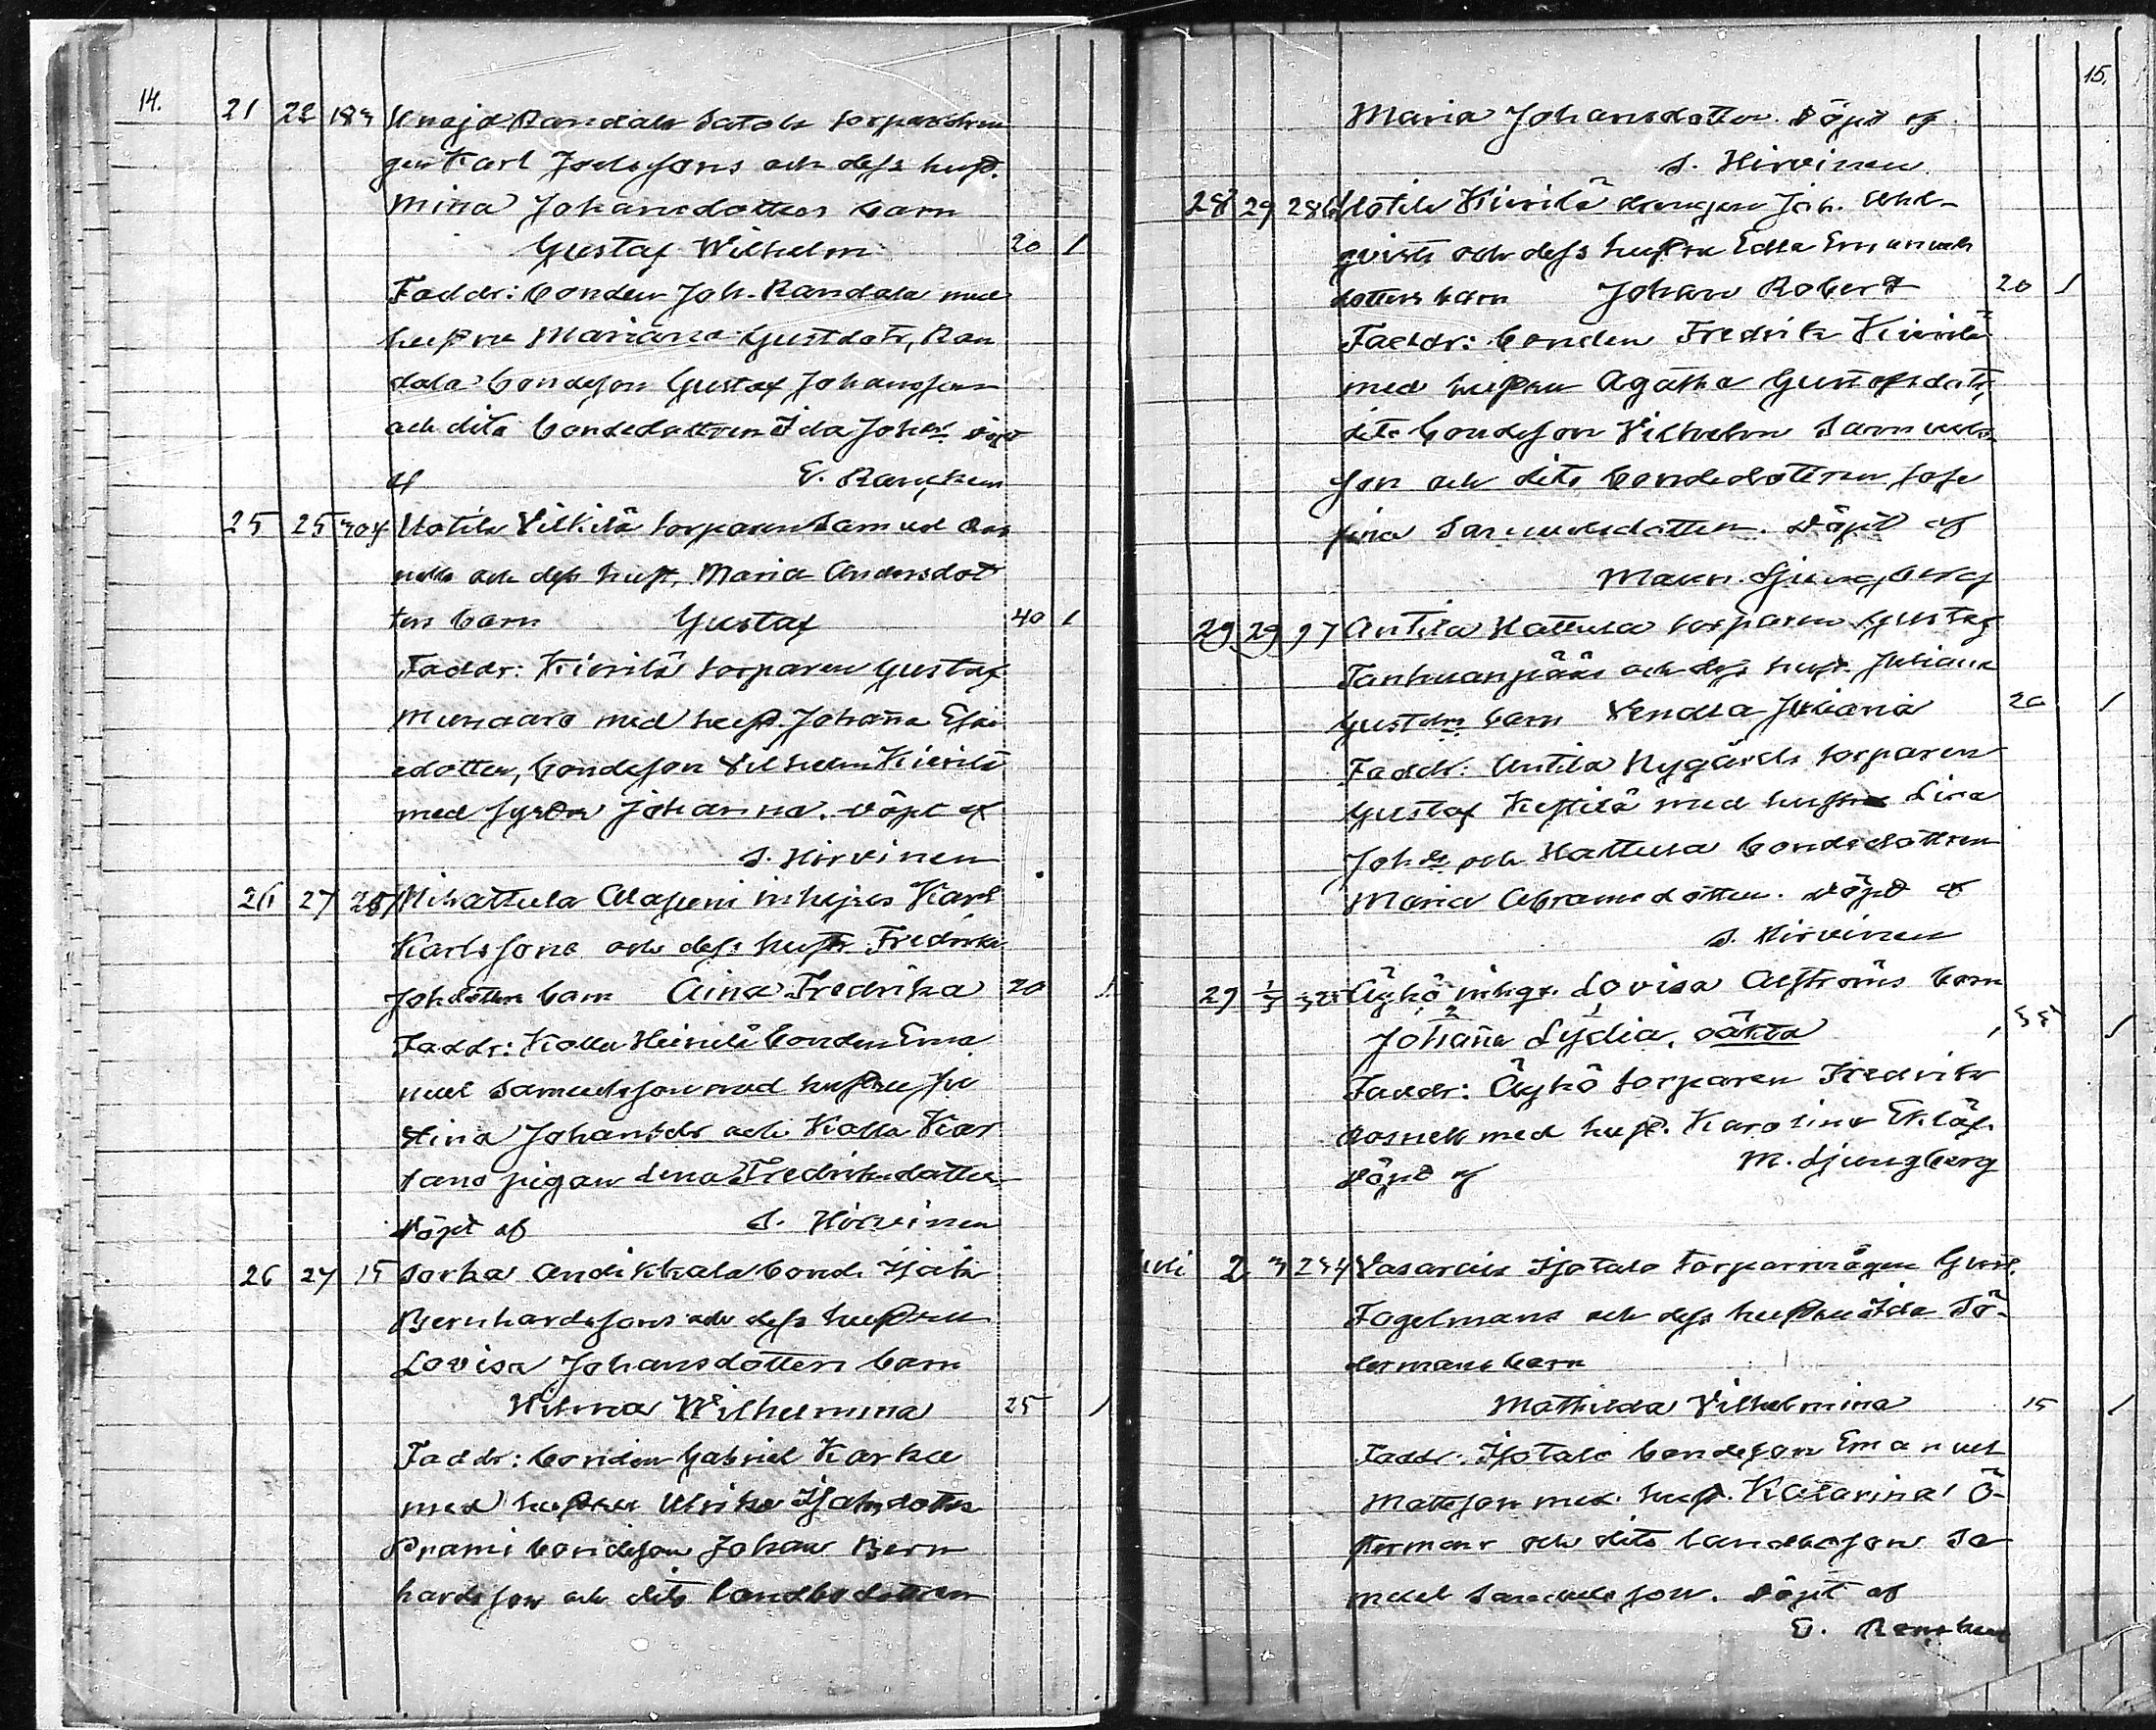 14.
21 22 183 Knaja Randala Satola torparedren
gen Karl Joelssons och dess hust.
Mina Johansdotters barn
Gustaf Wilhelm 20 1
Faddr: bonden Joh. Randala med
hustru Mariana Gustdotr, Ran
dala bondeson Gustaf Johansson
och dito bondedottren Ida Johns döpt
af E. Rancken
25 25 304 Uotila Vilkilä torparen Samuel Ros
nells och dess hust, Maria Andersdot
ters barn Gustaf 40 1
Faddr: Kivilä torparen Gustaf
med hust. Johanna
dotter, bondeson Vilhelm Kivilä
med systr Johanna. Döpt af
S. Hirvinen
26 27 257 Hihattula Alaseni inhyses Karl
Karlssons och dess hustr Fredrika
Johdotters barn Aina Fredrika 20 1
Faddr: Kolla Heinilä bonden Ema
nuel Samuelsson med hustru Ju
stina Johansdr och Kolla Kar
tano pigan Lena Fredriksdotter
Döpt af S. Hirvinen
26 27 15 Sorka Andikkala bond. Isak
Bernhardssons och dess hustru
Lovisa Johansdotters barn
Hilma Wilhelmina 25 1
Faddr: bonden Gabriel Karka
med hustru Ulrika Isaksdotter
Prami bondeson Johan Bern
hardsson och dito landbodottren
15.
Maria Johansdotter. Döpt af
S. Hirvinen
28 29 286 Uotila Kivilä drengen Joh.
qvists och dess hustru Edla Emanuels
dotters barn Johan Robert 20 1
Faddr: bonden Fredrik Kivilä
med hustru Agatha Gustafsdotr,
dito bondeson Vilhelm Samuels
son och dito bondedottren Jose
fina Samuelsdotter. Döpt af
Maur. Ljungberg
29 29 97 Antila Hattula torparen Gustaf
Tanhuanpääs och dess hust. Juliana
Gustdrs barn Vendla Juliana 20 1
Faddr: Antila Nygårds torparen
Gustaf Kestilä med hustru Lisa
Johdr och Hattula bondedottren
Maria Abramsdotter. Döpt af
S. Hirvinen
29 1/3 Äyhö inhys. Lovisa Alströms barn
2 1
Johanna Lydia, oäkta 1
Faddr: Äyhö torparen Fredrik
Rosnell med hust. Karolina Eklöf.
Döpt af M. Ljungberg
Juli 2 3 234 Vasarais Isotalo torparmågen Gust.
Fagelmans och dess hustru Ida Sö-
dermans barn
Mathilda Vilhelmina 15 1
Faddr. Isotalo bondeson Emanuel
Mattsson med hust. Katarina Ö-
sterman och dito landboson Sa
muel Samuelsson. Döpt af
E. Rancken